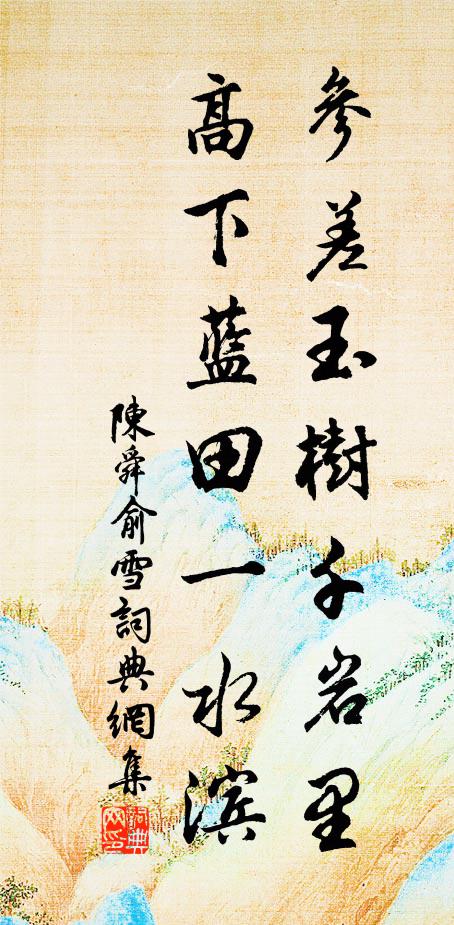 參差玉樹千岩里
高下藍田一水滨
陳舜俞雪詞典網集
詞典
網印